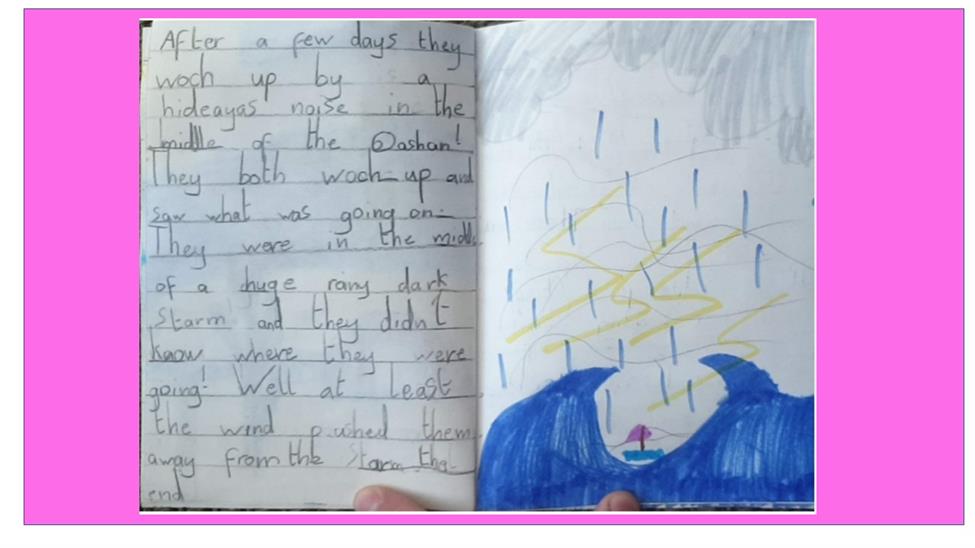 After a few days they
woch up by a
hideayas noise in the
middle of the Oashan!
They both woch up and
saw what was going on
They were in the middle
of a huge rany dark
Starm and they didn't
know where they were
going! Well at Least
the wind pushed them
away from the Starm the
end